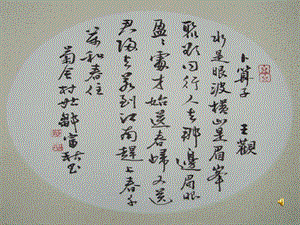 卜算子 王觀
水是眼波横山是眉峯
聚欲问行人去那邊眉眼
盈盈處才始送春歸又送
君归去若到江南趕上春千
萬和春住